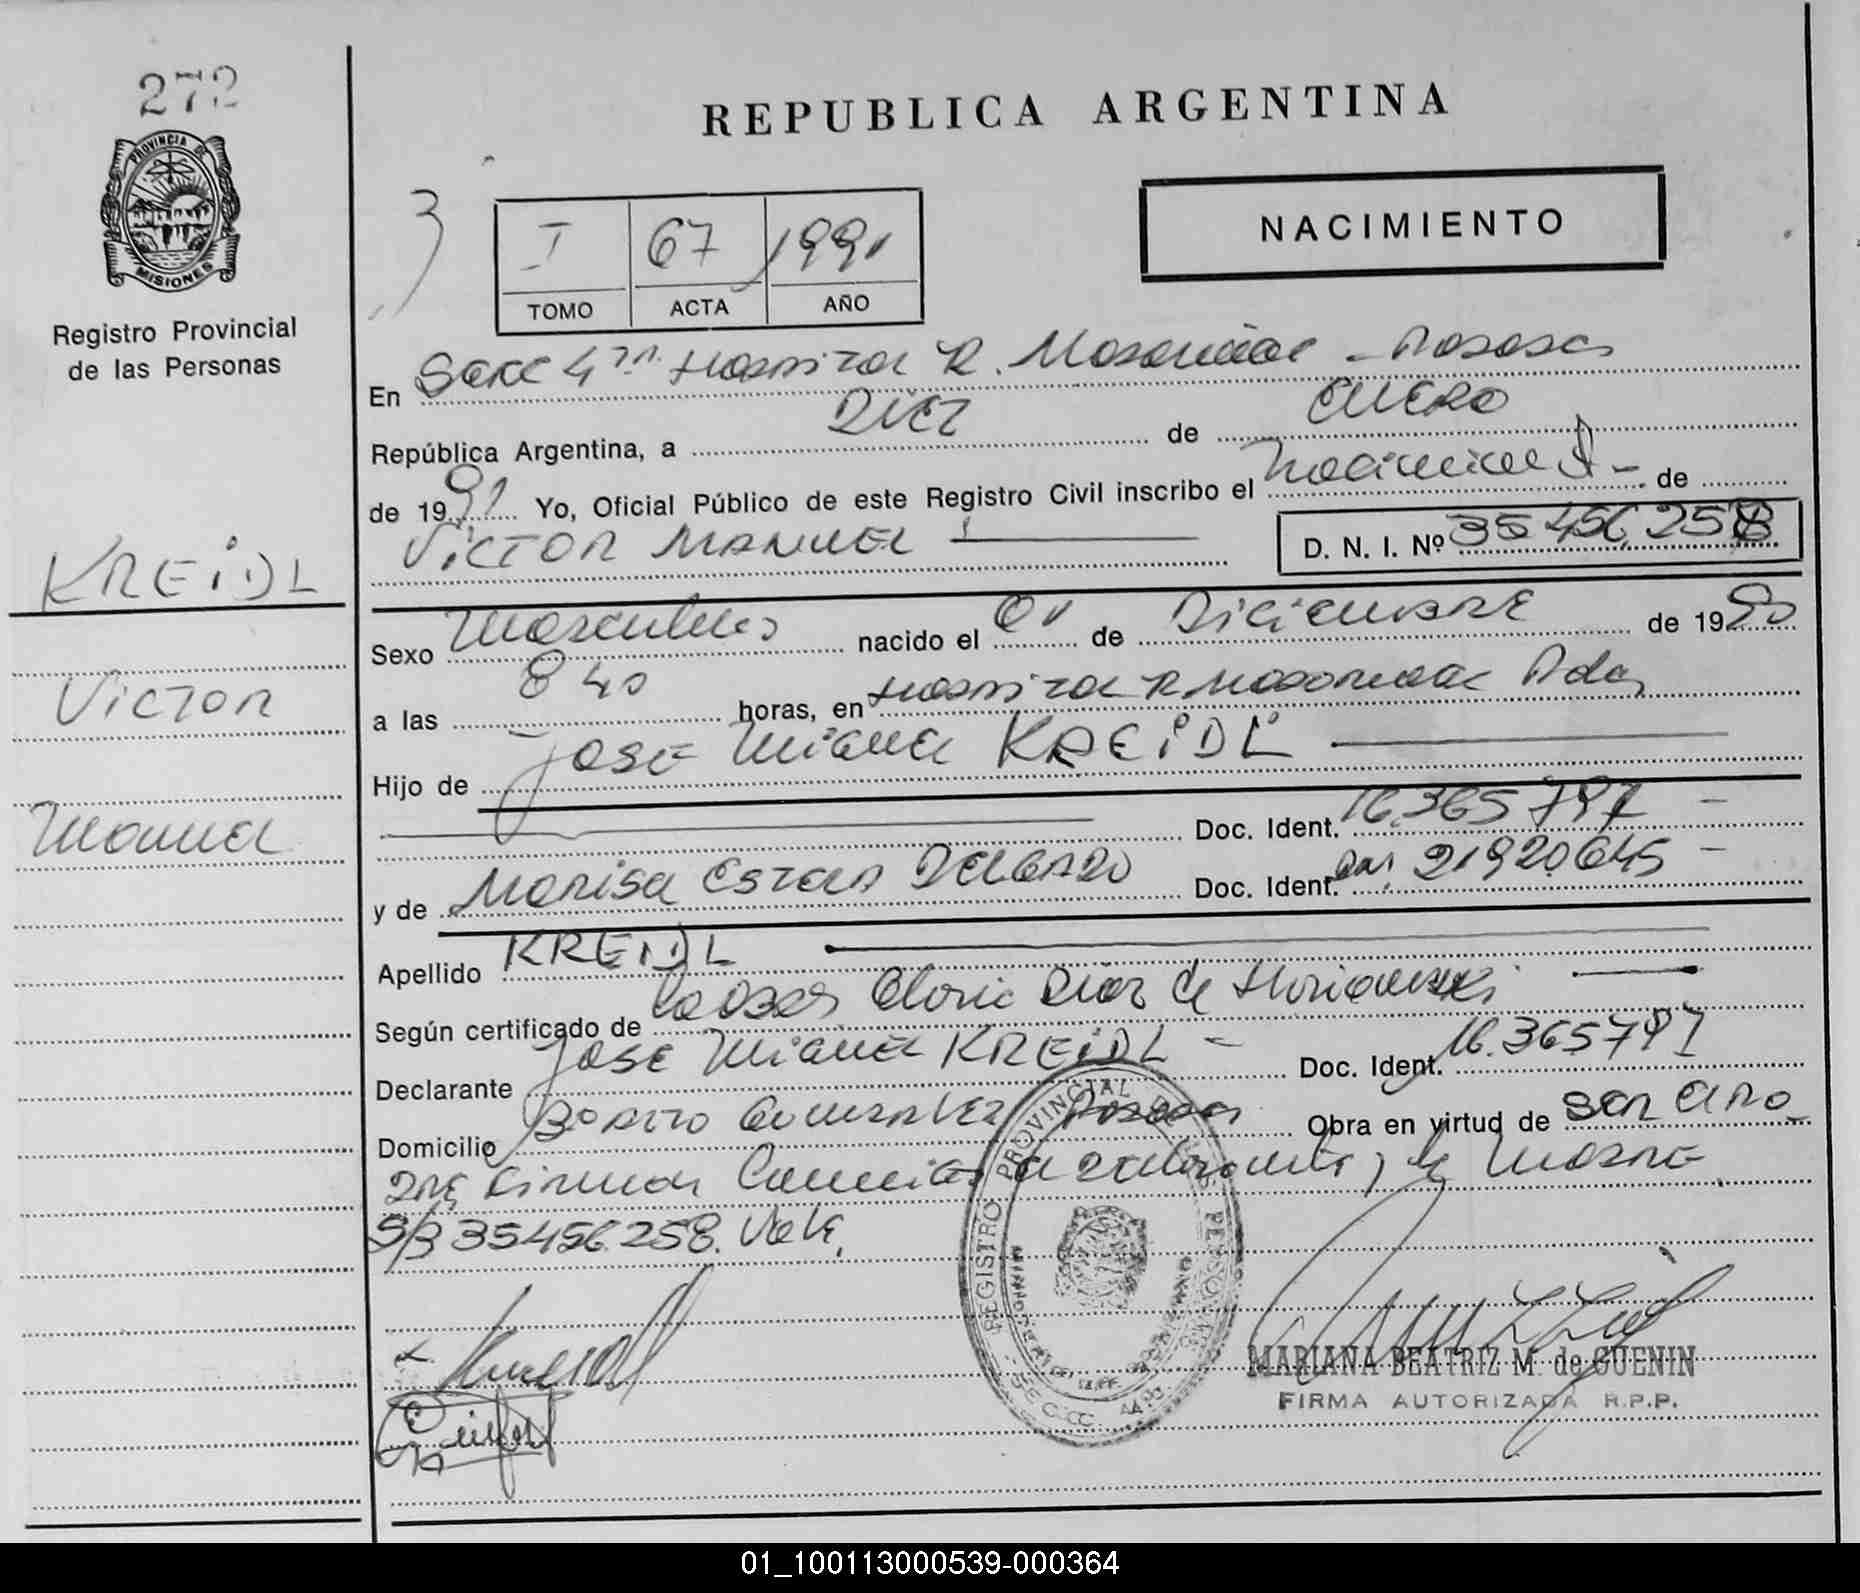 272
PROVINCIA DE
MISIONES
Registro Provincial
de las Personas
KREIDL
Victor
Manuel
REPUBLICA ARGENTINA
NACIMIENTO
3
I 67 1991
TOMO ACTA AÑO
En Secc 4ta Hospital R. Madariaga - Posadas
República Argentina, a DIEZ de ENERO
de 1991 Yo, Oficial Público de este Registro Civil inscribo el nacimiento - de
VICTOR MANUEL
D. N. I. Nº 35456.258
Sexo Masculino nacido el 01 de Diciembre de 1990
a las 8 40 horas, en Hospital R Madariaga Pdas
Hijo de JOSE Miguel KREIDL
Doc. Ident. 16.365797 -
y de Marisa Ester DELGADO Doc. Ident. DNI 21920645 -
Apellido KREIDL
Según certificado de Gloria Diaz de
Declarante JOSE Miguel KREIDL - Doc. Ident. 16.365797
Domicilio Bº Gonzalez Posadas Obra en virtud de ser el Pa
dre Firman Conmigo el declarante y la Madre
S/B 35456.258. Vale.
REGISTRO PROVINCIAL DE LAS PERSONAS
MARIANA BEATRIZ M. de GUENIN
FIRMA AUTORIZADA R.P.P.
01_100113000539-000364